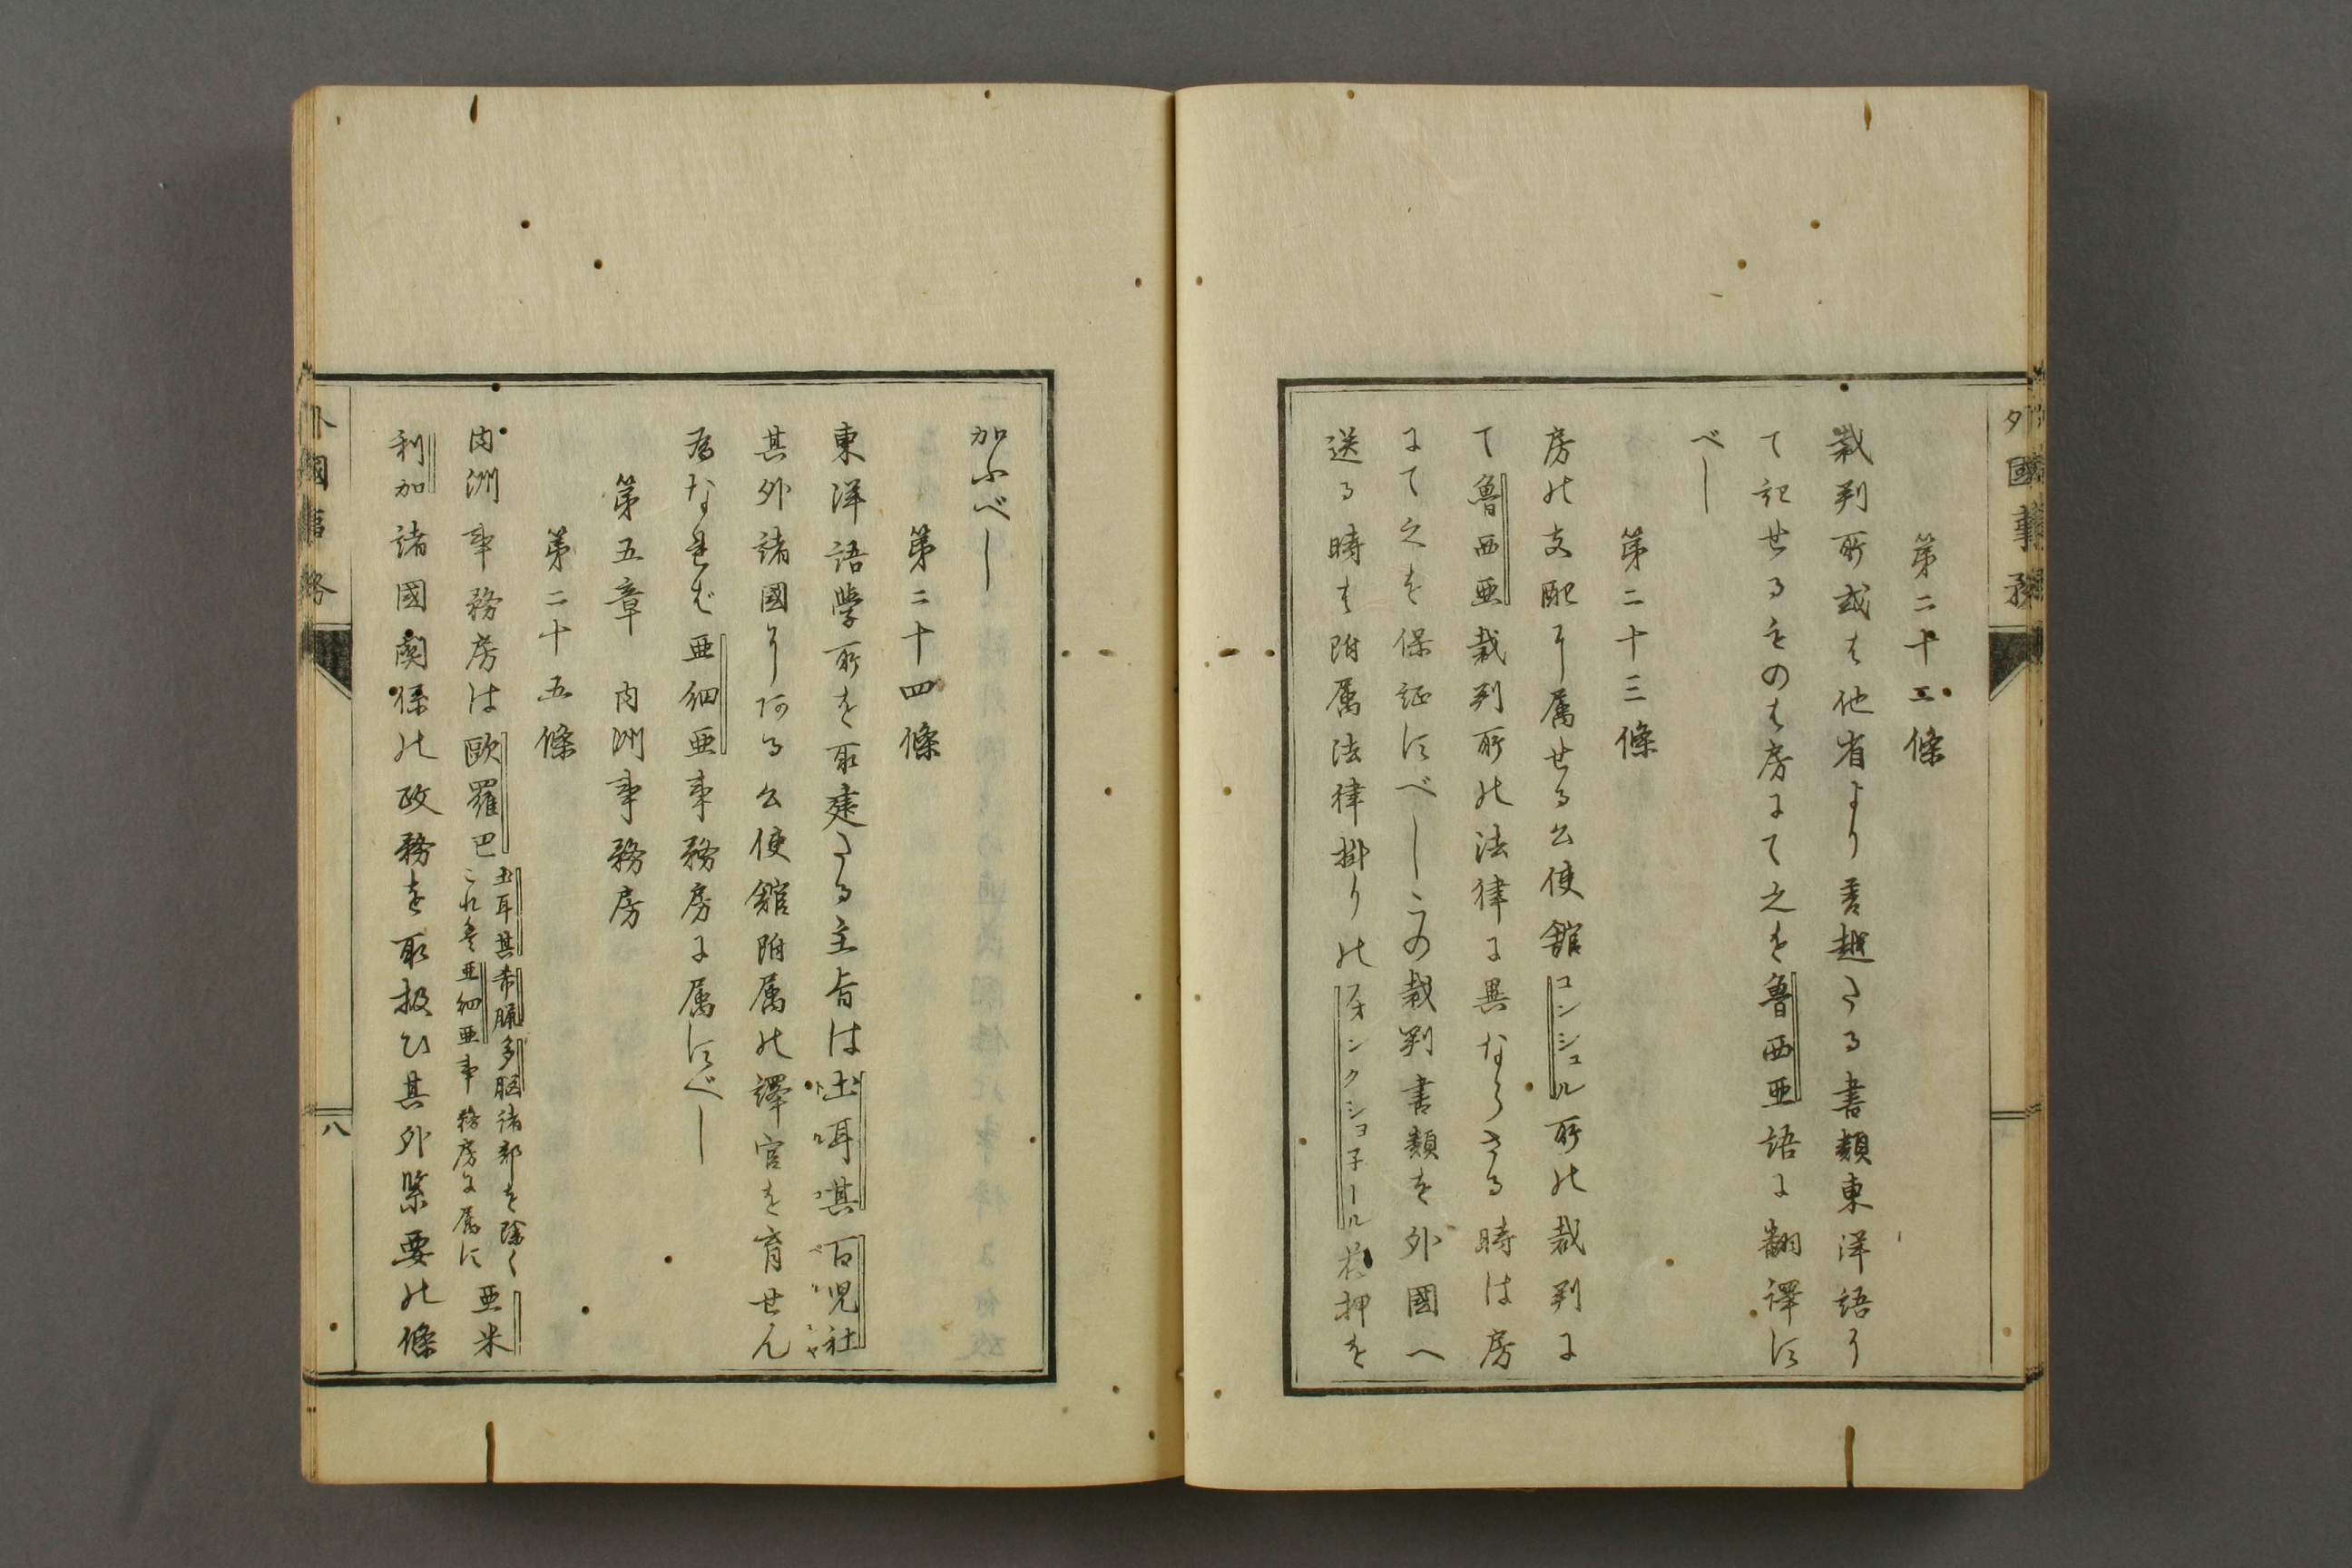 第二十二條
裁判所或は他省より書越たる書類東洋語に
て記せるものは房にて之を魯西亜語に翻譯す
べし
第二十三條
房の支配に属せる公使舘コンシュル所の裁判に
て魯西亜裁判所の法律に異ならざる時は房
にて之を保証すべしこの裁判書類を外國へ
送る時は附属法律掛りのフオンクショ子ール花押を
加ふべし
第二十四條
東洋語學所を取建たる主旨は土耳其百児社
其外諸國に在る公使舘附属の譯官を育せん
為なれば亜細亜事務房に属すべし
第五章 内洲事務房
第二十五條
内洲事務房は歐羅巴土耳其希臘多脳諸部を除くこれ等亜細亜事務房に属す亜米
利加諸國関係の政務を取扱ひ其外緊要の條
外國事務
八